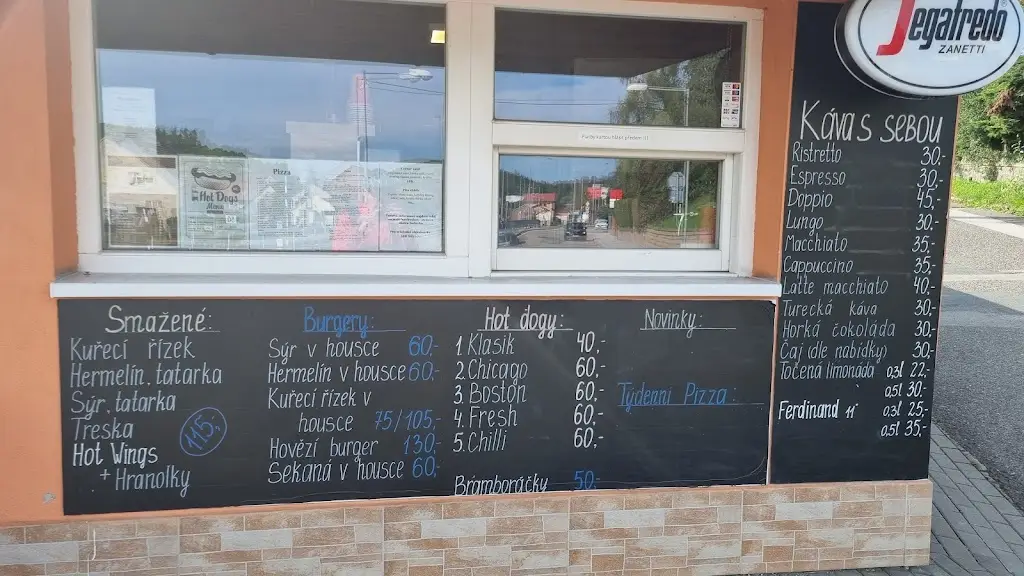 Segafredo
ZANETTI
Káva s sebou
Ristretto 30,-
Espresso 30,-
Doppio 45,-
Lungo 30,-
Macchiato 35,-
Cappuccino 35,-
Latte macchiato 40,-
Turecká káva 30,-
Horká čokoláda 30,-
Čaj (dle nabídky) 30,-
Točená limonáda 0,3l 22,-
0,5l 30,-
Ferdinand 11° 0,3l 25,-
0,5l 35,-
Pizza
Hot Dogs
Menu
Smažené:
Kuřecí řízek
Hermelín, tatarka
Sýr, tatarka
Treska
Hot Wings
+ Hranolky
115,-
Burgery:
Sýr v housce 60,-
Hermelín v housce 60,-
Kuřecí řízek v
housce 75/105,-
Hovězí burger 130,-
Sekaná v housce 60,-
Hot dogy:
1. Klasik 40,-
2. Chicago 60,-
3. Boston 60,-
4. Fresh 60,-
5. Chilli 60,-
Bramboráčky 50,-
Novinky:
Týdenní Pizza: